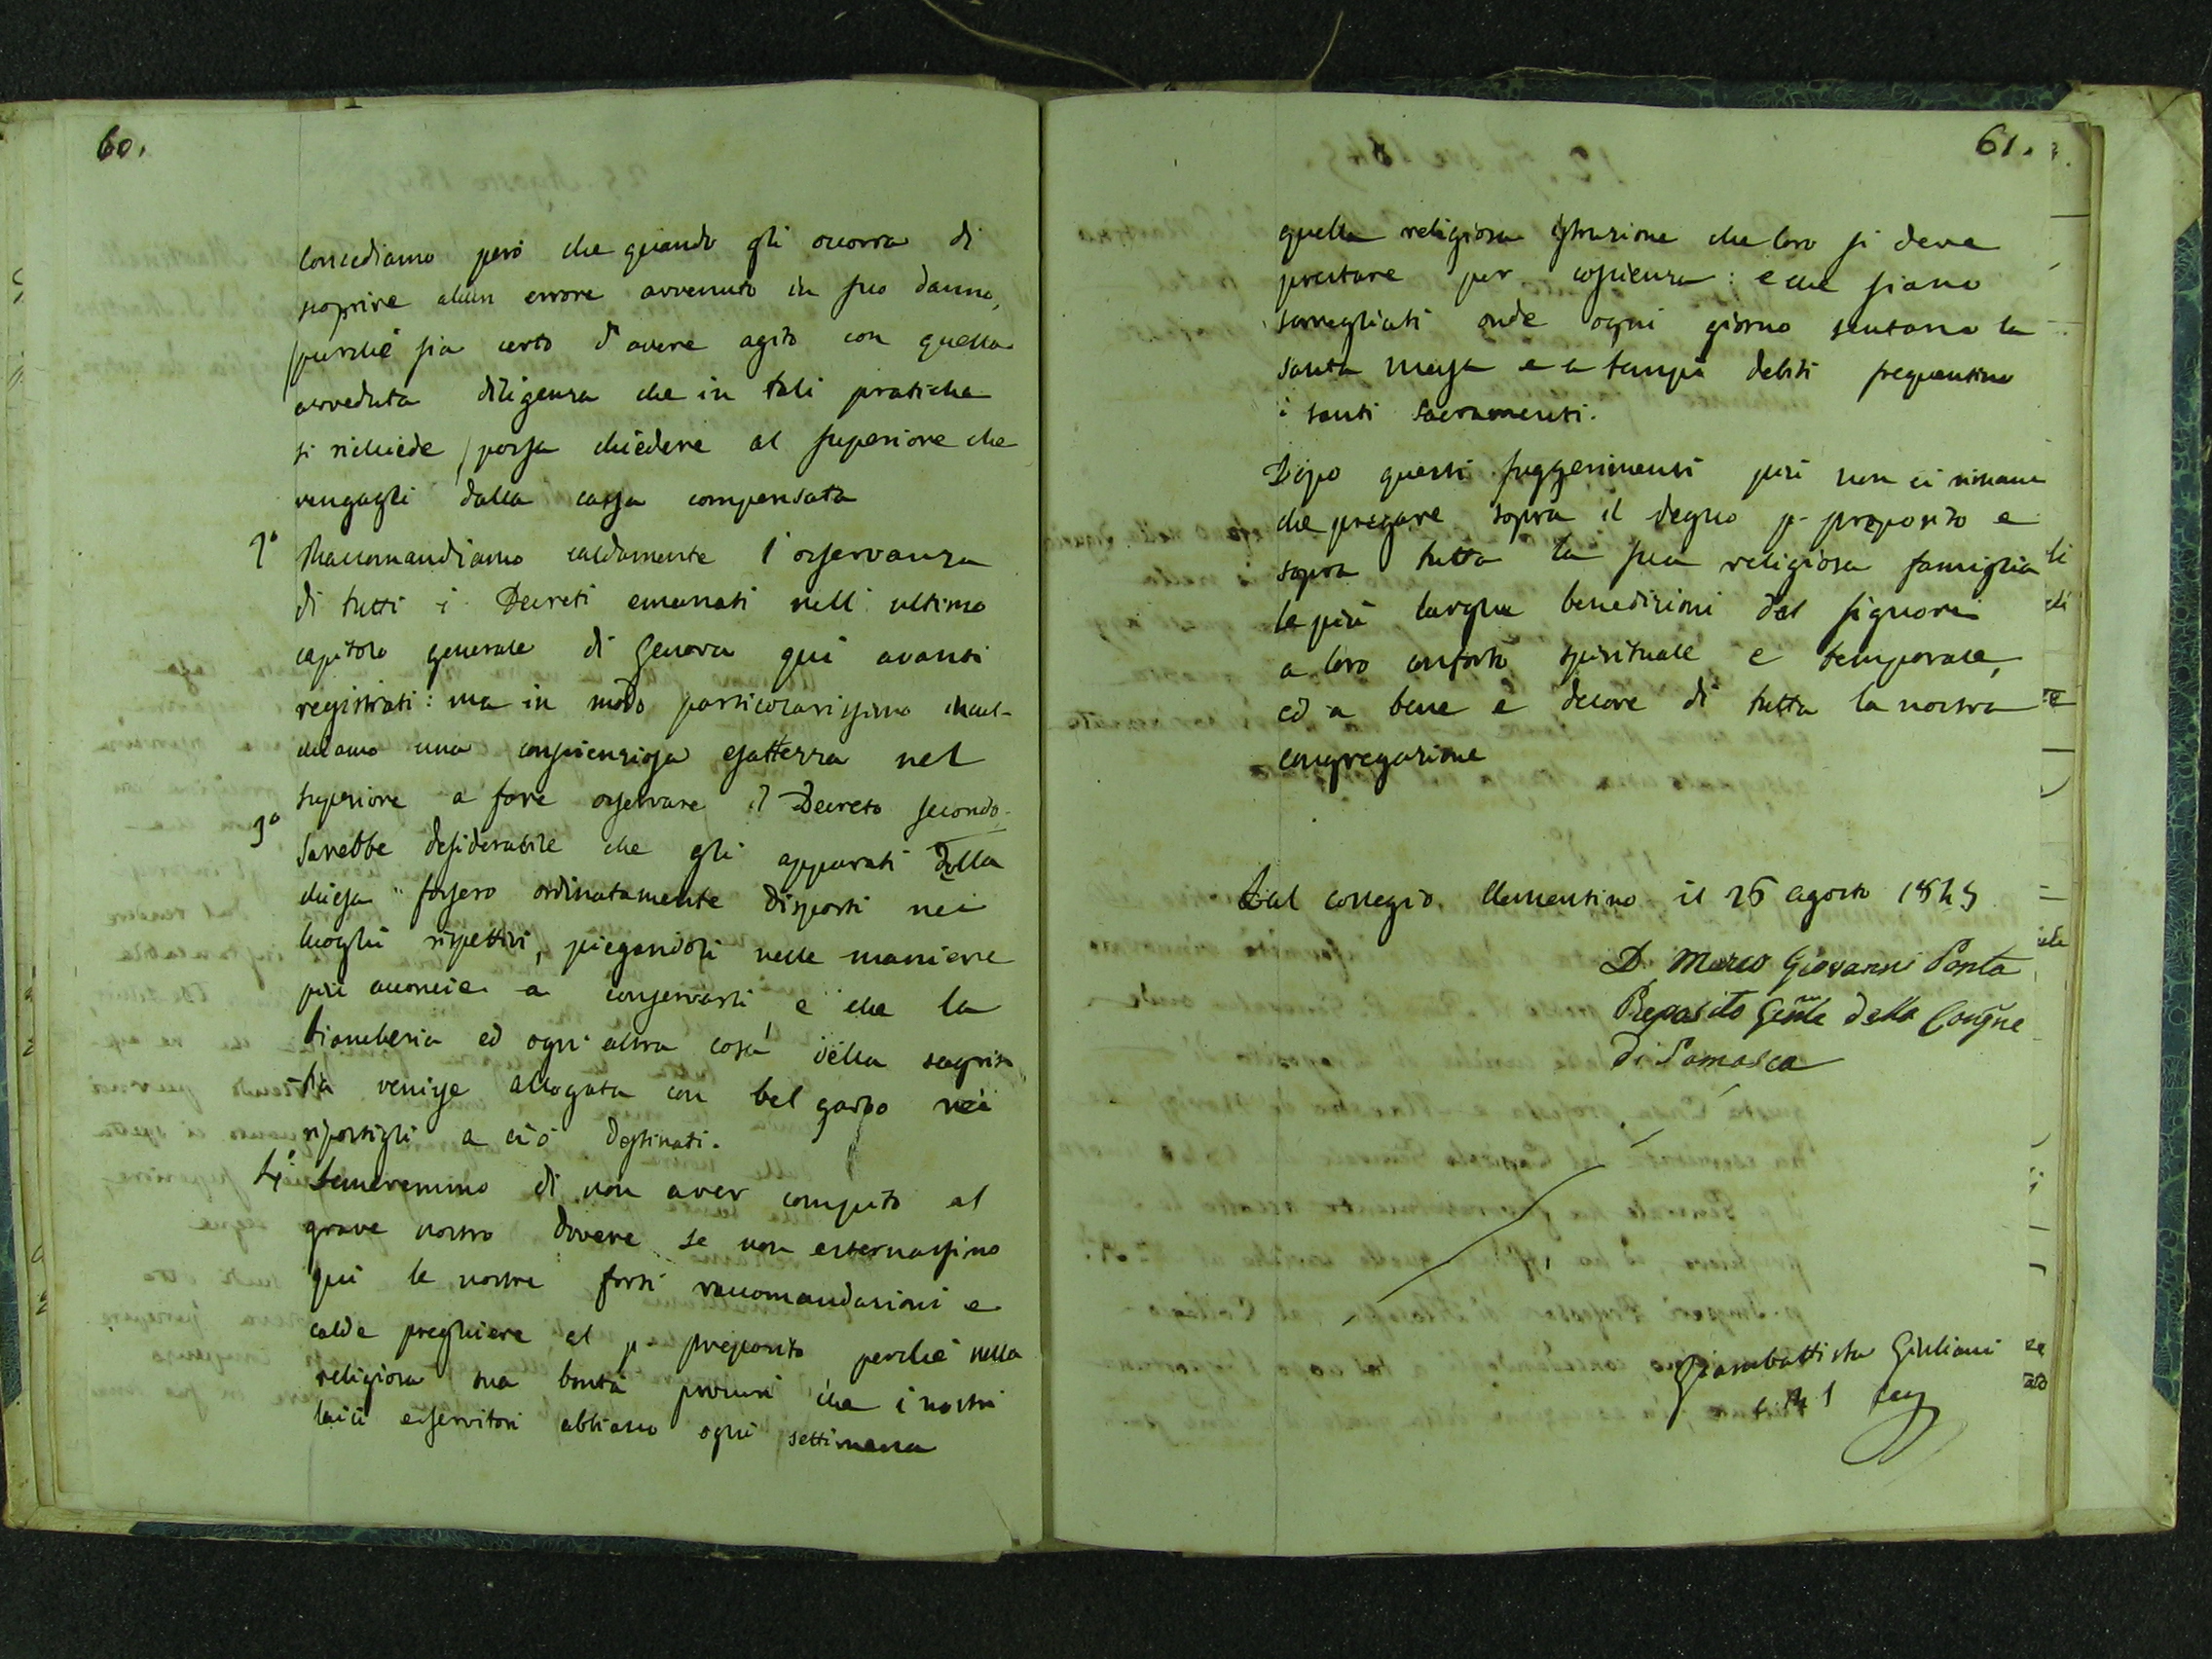 60.
Concediamo però che quando gli occorra di
scoprire alcun errore avvenuto in suo danno,
(purché sia certo d'avere agito con quella
avveduta diligenza che in tali pratiche
si richiede) possa chiedere al superiore che
vengagli dalla cassa compensata
2° Raccomandiamo caldamente l'osservanza
di tutti i Decreti emanati nell'ultimo
capitolo generale di Genova qui avanti
registrati: ma in modo particolarissimo incul-
chiamo una conscienziosa esattezza nel
superiore a fare osservare il Decreto secondo.
3° Sarebbe desiderabile che gli apparati della
chiesa fossero ordinatamente disposti nei
luoghi rispettivi, piegandoli nelle maniere
più acconcie a conservarli, e che la
biancheria ed ogni altra cosa della sagris-
tia venisse allogata con bel garbo nei
ripostigli a ciò destinati.
4° Temeremmo di non aver compito al
grave nostro dovere se non esternassimo
qui le nostre forti raccomandazioni e
calde preghiere al p. preposito perché nella
religiosa sua bontà procuri che i nostri
laici e servitori abbiano ogni settimana
61.
quella religiosa istruzione che loro si deve
prestare per coscienza: e che siano
sorvegliati onde ogni giorno sentano la
santa messa e a tempi debiti frequentino
i santi Sacramenti.
Dopo questi suggerimenti più non ci rimane
che pregare sopra il degno p. preposito e
sopra tutta la sua religiosa famiglia
le più larghe benedizioni del Signore
a loro conforto spirituale e temporale,
ed a bene e decore di tutta la nostra
congregazione
Dal collegio Clementino il 26 agosto 1845
D. Marco Giovanni Ponta
Preposito Gnle della Congne
di Somasca
Giambattista Giuliani